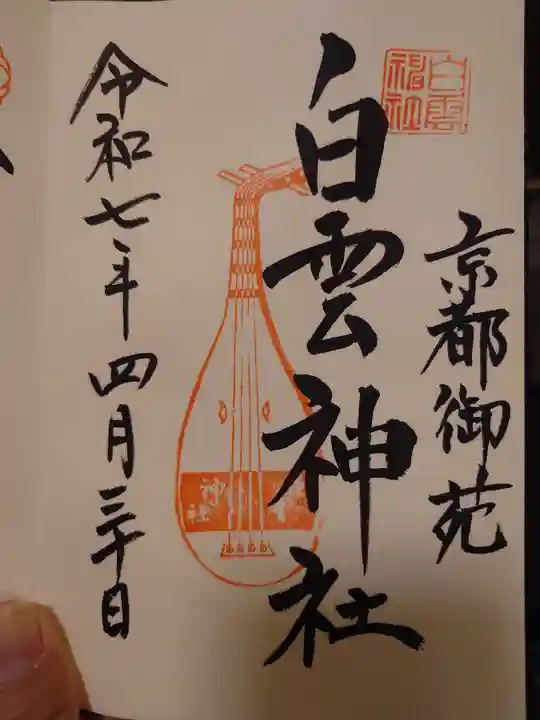 京都御苑
白雲神社
白雲神社
神社
令和七年四月三十日